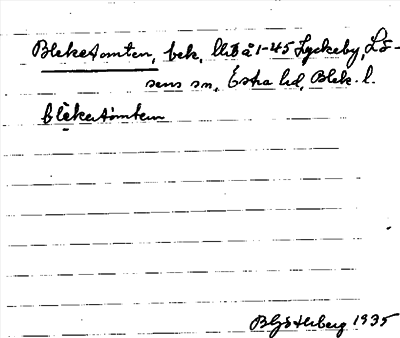 Bleketomten, bek. llt8 å 1-45 Lyckeby, Lö-
sens sn, Östra hd, Blek. l.
blèketòmten
B Götlberg 1935